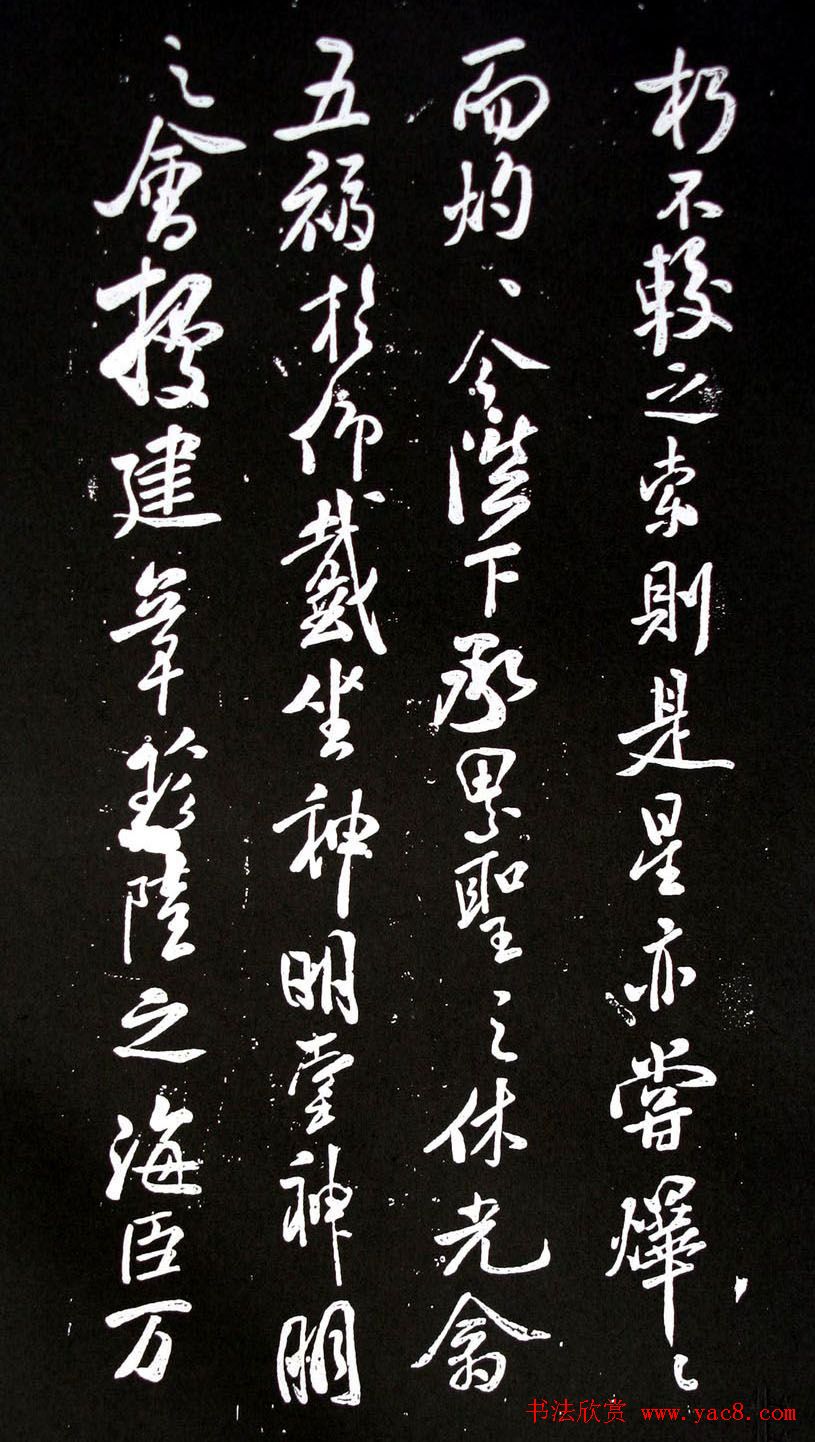 朽不較之索則是星亦嘗爗〻
而灼〻今陛下承累聖之休光翕
五福於仰戴坐神明堂神明
之會授建章軫陸之海臣万
书法欣赏 www.yac8.com